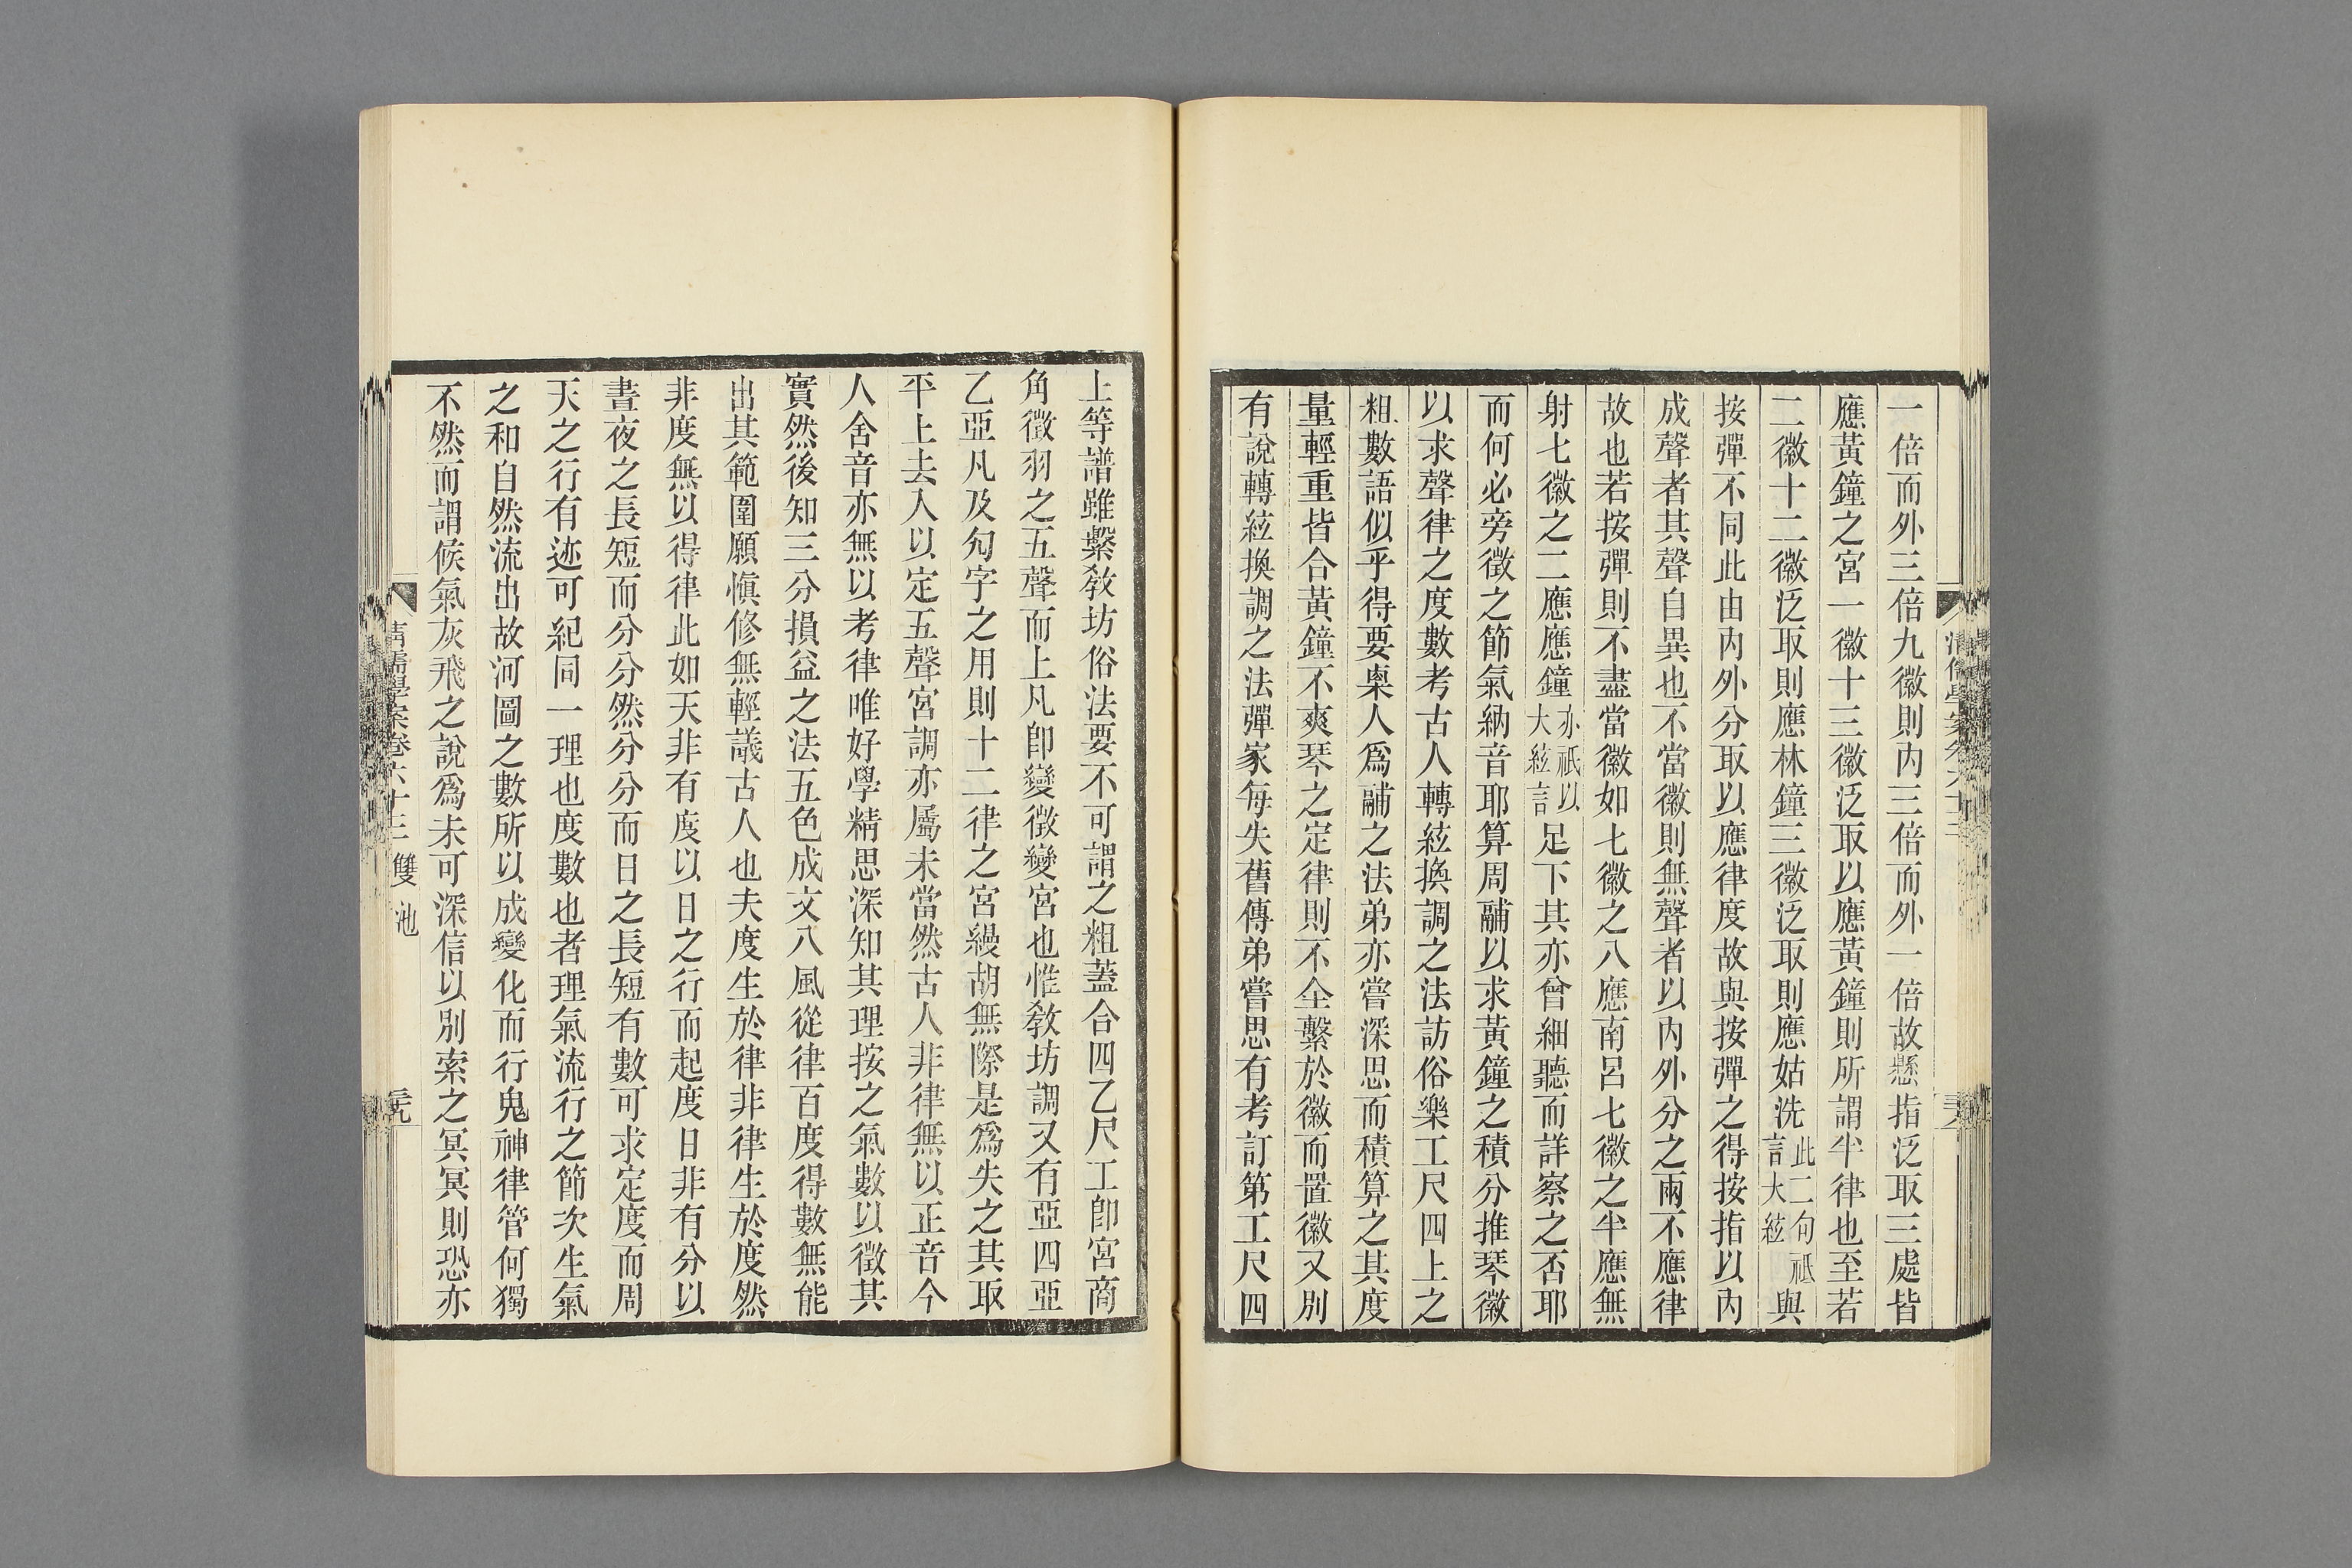 一倍而外三倍九徽則內三倍而外一倍故懸指泛取三處皆
應黃鐘之宮一徽十三徽泛取以應黃鐘則所謂半律也至若
二徽十二徽泛取則應林鐘三徽泛取則應姑洗此二句祗言大絃與
按彈不同此由內外分取以應律度故與按彈之得按指以內
成聲者其聲自異也不當徽則無聲者以內外分之兩不應律
故也若按彈則不盡當徽如七徽之八應南呂七徽之半應無
射七徽之二應應鐘亦祇以大絃言足下其亦曾細聽而詳察之否耶
而何必旁徵之節氣納音耶算周鬴以求黃鐘之積分推琴徽
以求聲律之度數考古人轉絃換調之法訪俗樂工尺四上之
粗數語似乎得要㮚人爲鬴之法弟亦嘗深思而積算之其度
量輕重皆合黃鐘不爽琴之定律則不全繫於徽而置徽又別
有說轉絃換調之法彈家每失舊傳弟嘗思有考訂第工尺四
上等譜雖繫敎坊俗法要不可謂之粗蓋合四乙尺工卽宮商
角徵羽之五聲而上凡卽變徵變宮也惟敎坊調又有亞四亞
乙亞凡及勾字之用則十二律之宮縵胡無際是爲失之其取
平上去入以定五聲宮調亦屬未當然古人非律無以正音今
人舍音亦無以考律唯好學精思深知其理按之氣數以徵其
實然後知三分損益之法五色成文八風從律百度得數無能
出其範圍願愼修無輕議古人也夫度生於律非律生於度然
非度無以得律此如天非有度以日之行而起度日非有分以
晝夜之長短而分分然分分而日之長短有數可求定度而周
天之行有迹可紀同一理也度數也者理氣流行之節次生氣
之和自然流出故河圖之數所以成變化而行鬼神律管何獨
不然而謂候氣灰飛之說爲未可深信以別索之冥冥則恐亦
清儒學案卷六十三 雙池